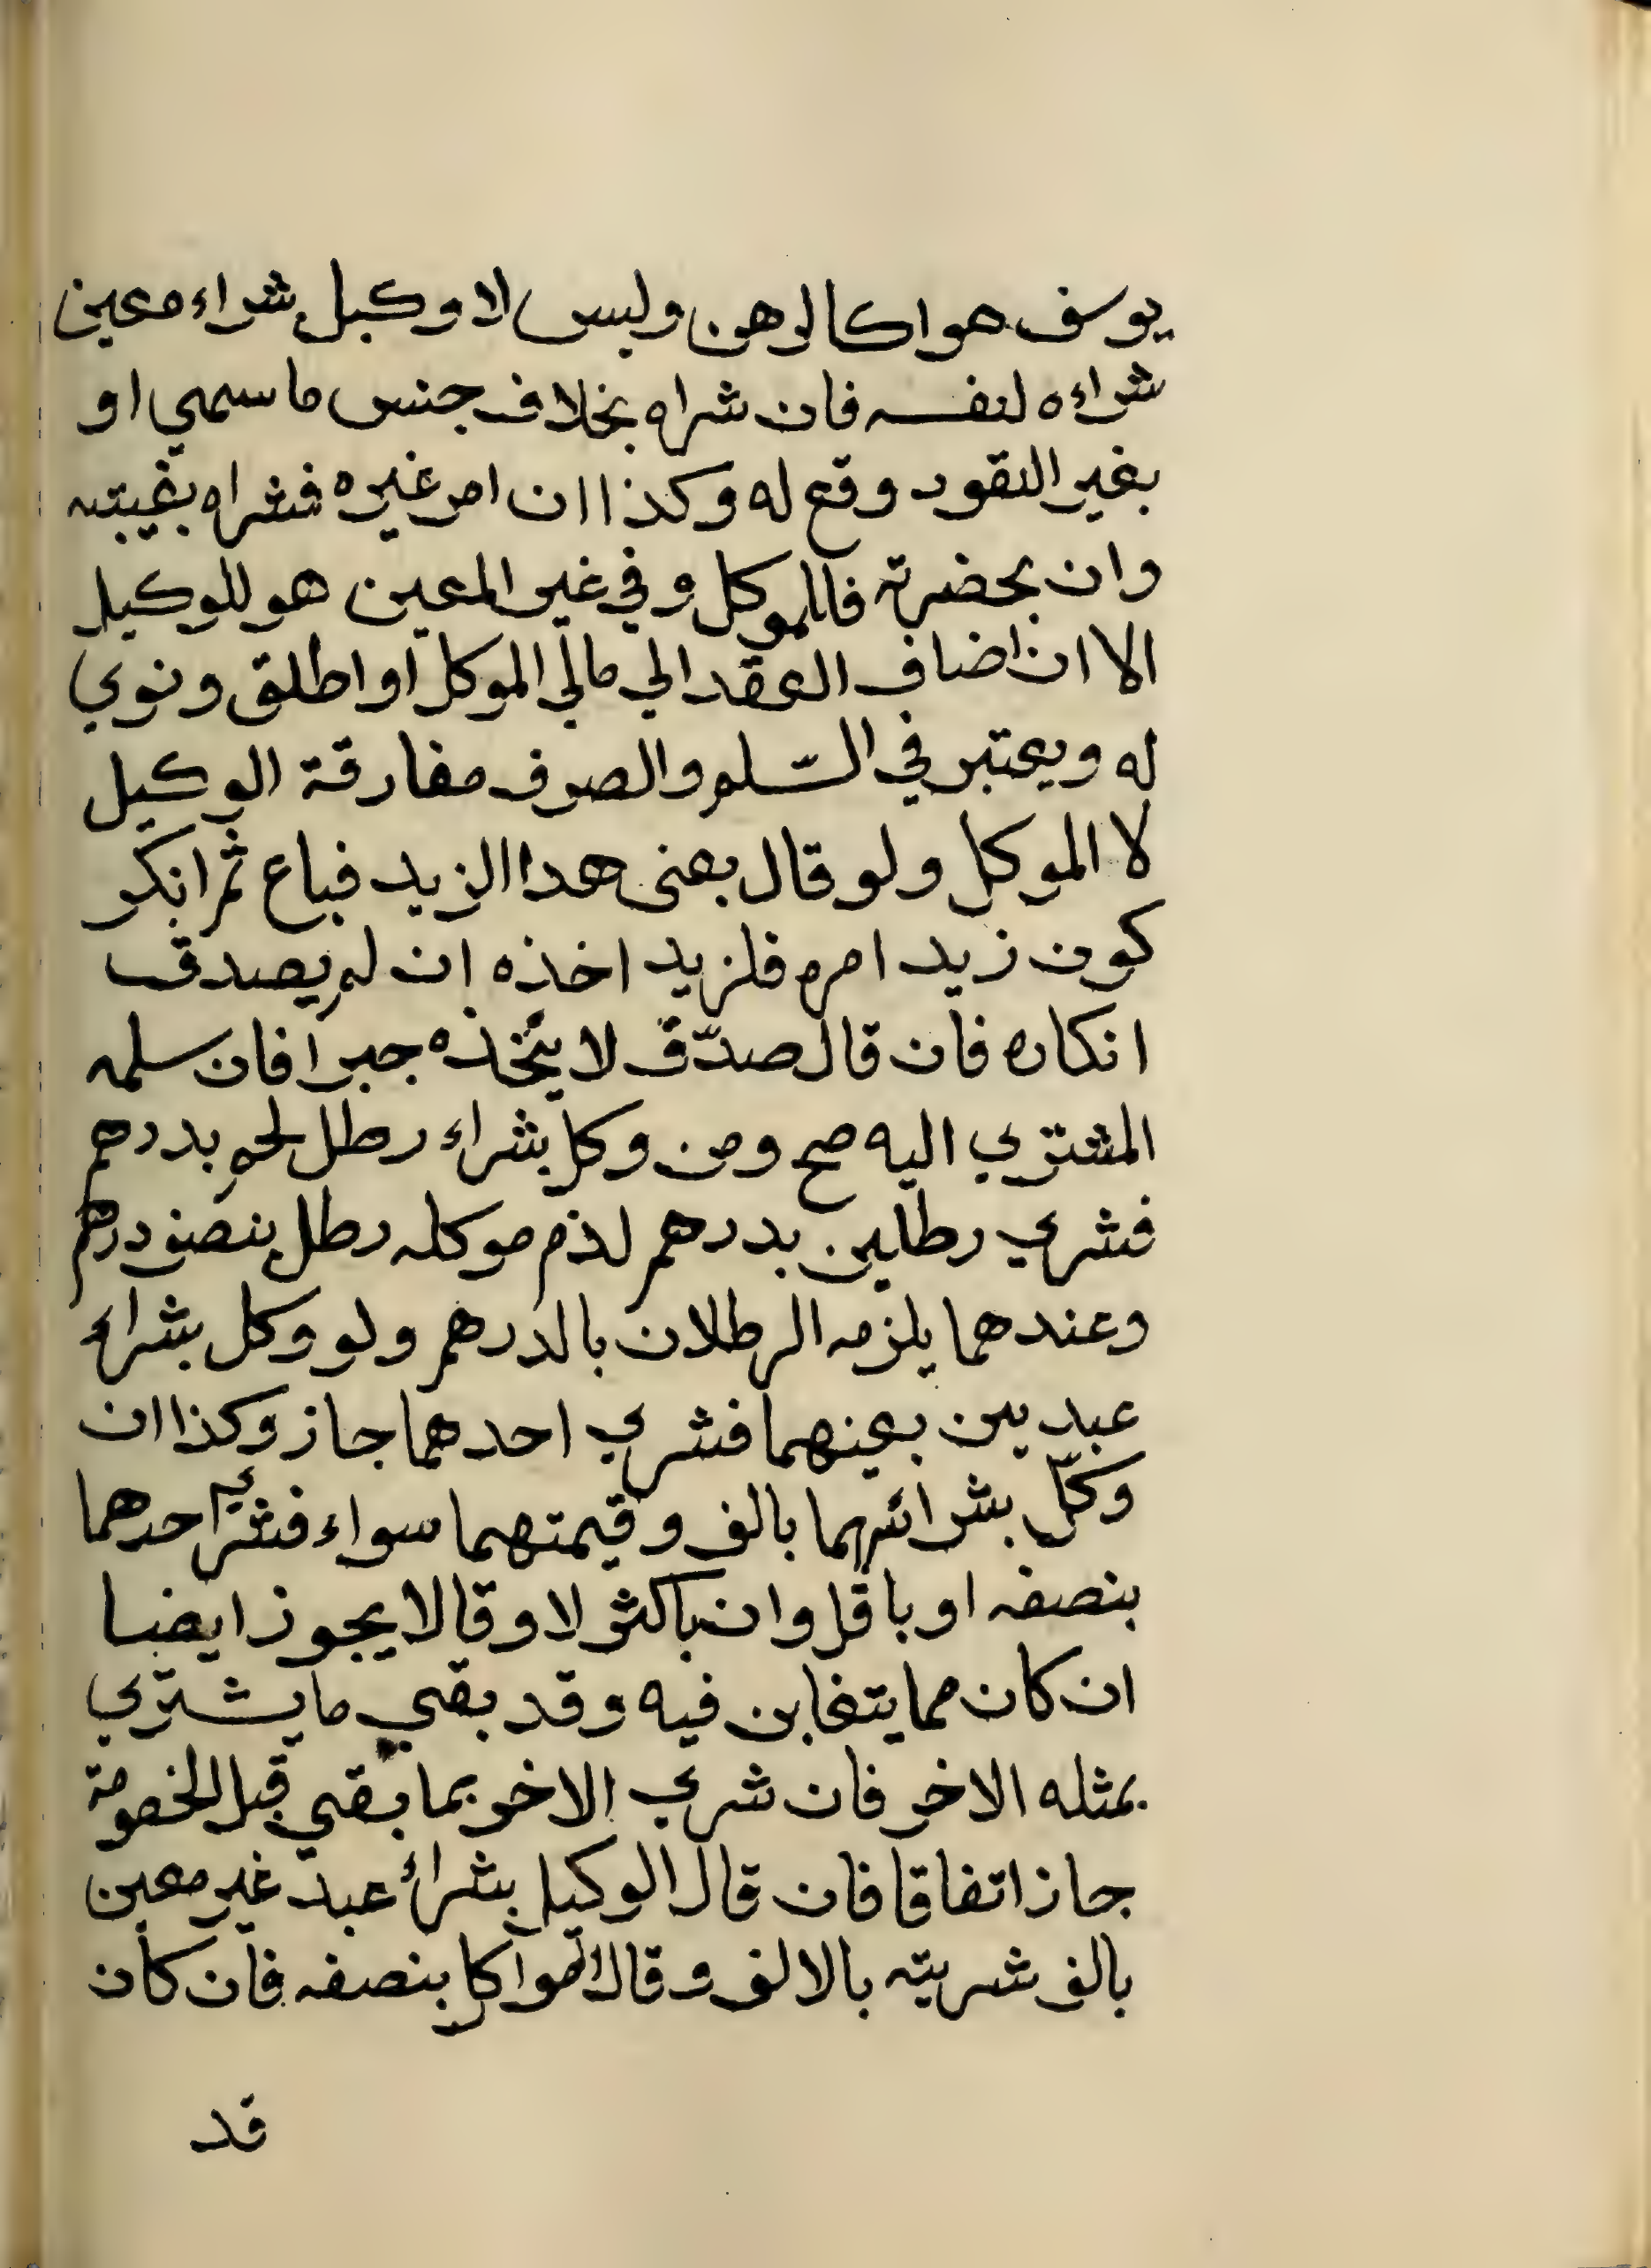 يوسف هو اكالرهن وليس لا وكيل شراء معين
شراءه لنفسه فان شراه بخلاف جنس ما سمي او
بغير النقود وقع له وكذا ان امر غيره فشراه بغيبته
وان بحضرته فاللموكل وفي غير المعين هو للوكيل
الا ان اضاف العقد الي مالي الموكل او اطلق ونوي
له ويعتبر في السّلم والصرف مفارقة الوكيل
لا الموكل ولو قال بعنى هدا الزيد فباع ثم انكر
كون زيد امره فلزيد اخذه ان لم يصدق
انكاره فان قال صدّق لا يتخذه جبرا فان سلمه
المشتري اليه صح ومن وكل بشراء رطل لحم بدرهم
فشري رطلين بدرهم لذم موكله رطل بنصف درهم
وعندهما يلزمه الرطلان بالدرهم ولو وكل بشراء
عبديين بعينهما فشري احدهما جاز وكذا ان
وكلّ بشرائهما بالف وقيمتهما سواء فشري احدهما
بنصفه او باقل وان باكثر لا وقالا يجوز ايضا
ان كان مما يتغابن فيه وقد بقي ما يشتري
بمثله الاخر فان شري الاخر بما بقي قبل الخصومة
جاز اتفاقا فان قال الوكيل بشرائ عبد غير معين
بالف شريته بالالف وقال المواكل بنصفه فان كان
قد